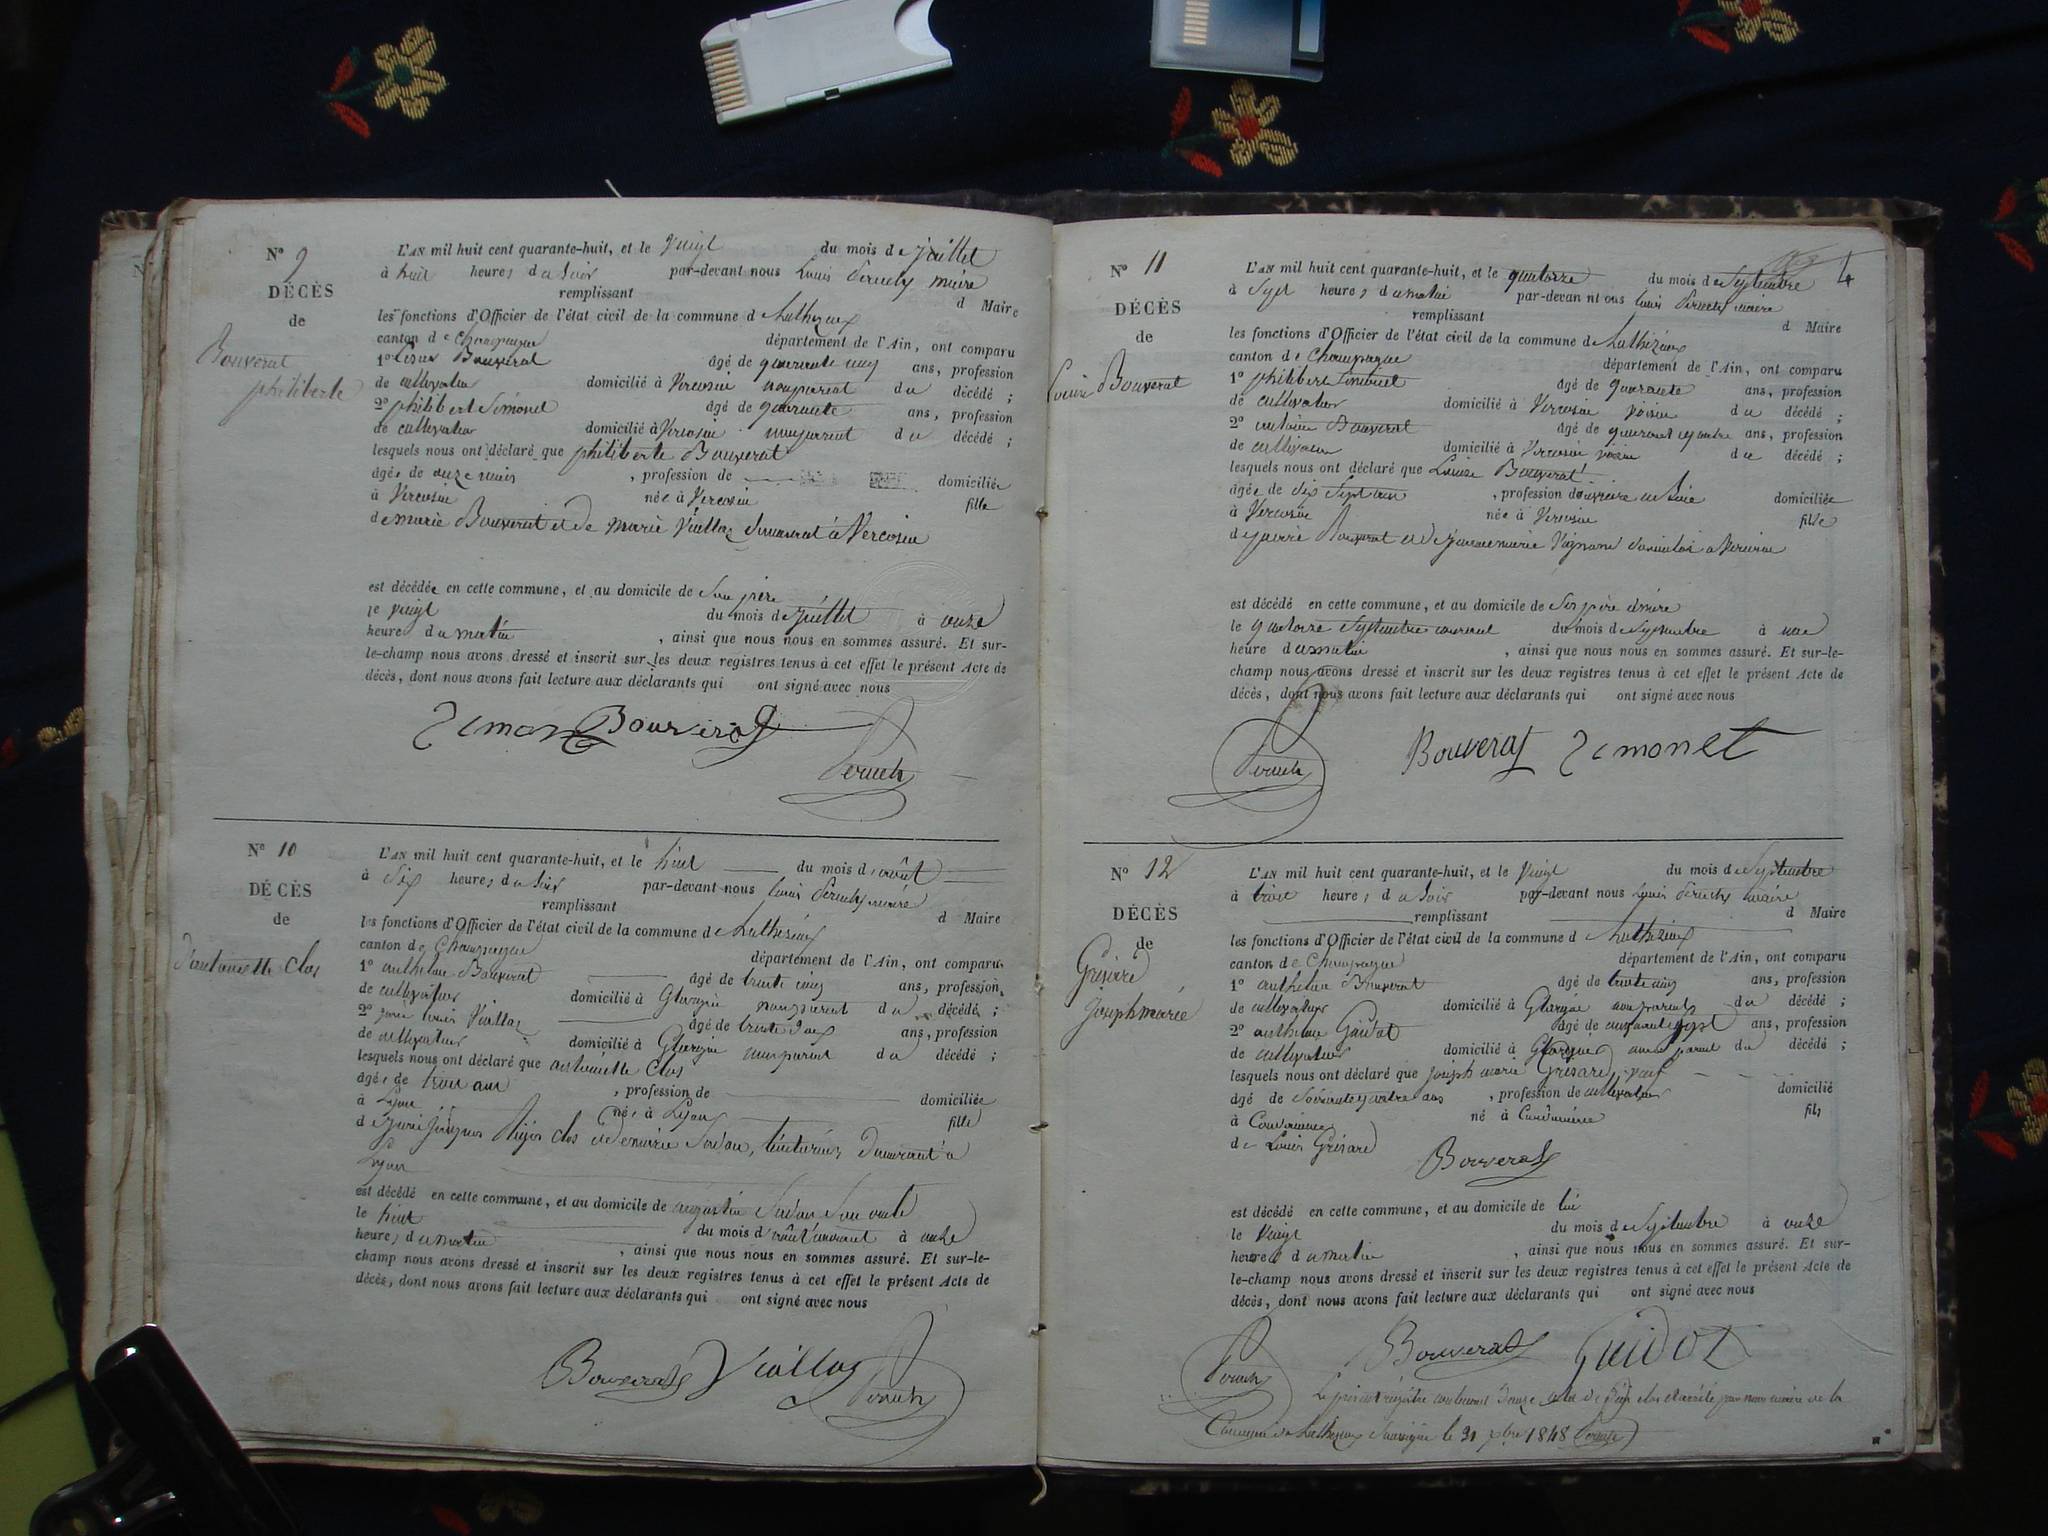 N° 9
DÉCÈS
de
Bouverat
philiberte
L'AN mil huit cent quarante-huit, et le vingt du mois de juillet
à huit heures du soir par-devant nous Louis Peruch maire
remplissant d Maire
les fonctions d'Officier de l'état civil de la commune d
canton de Champagne département de l'Ain, ont comparu
1° Bouverat âgé de quarante cinq ans, profession
de cultivateur domicilié à Vercosin non parent du décédé ;
2° philibert Simonet âgé de quarante ans, profession
de cultivateur domicilié à Vercosin non parent du décédé ;
lesquels nous ont déclaré que philiberte Bouverat
âgée de onze mois , profession de domiciliée
à Vercosin née à Vercosin fille
de marie Bouverat et de marie Viallaz demeurant à Vercosin
est décédée en cette commune, et au domicile de son père
le vingt du mois de juillet à onze
heures du matin , ainsi que nous nous en sommes assuré. Et sur-
le-champ nous avons dressé et inscrit sur les deux registres tenus à cet effet le présent Acte de
décès, dont nous avons fait lecture aux déclarants qui ont signé avec nous
Bouverat
Peruch
N° 10
DÉCÈS
de
d'antoinette Clos
L'AN mil huit cent quarante-huit, et le huit du mois d'août
à six heures du soir par-devant nous Louis Peruch maire
remplissant d Maire
les fonctions d'Officier de l'état civil de la commune de
canton de Champagne département de l'Ain, ont comparu
1° anthelme Bouverat âgé de trente cinq ans, profession
de cultivateur domicilié à non parent du décédé ;
2° Louis Viallaz âgé de trente ans, profession
de cultivateur domicilié à non parent du décédé ;
lesquels nous ont déclaré que antoinette Clos
âgée de trois ans , profession de domiciliée
à Lyon née à Lyon fille
de Clos et de marie demeurant à
Lyon
est décédé en cette commune, et au domicile de son oncle
le huit du mois d'août courant à onze
heures du matin , ainsi que nous nous en sommes assuré. Et sur-le-
champ nous avons dressé et inscrit sur les deux registres tenus à cet effet le présent Acte de
décès, dont nous avons fait lecture aux déclarants qui ont signé avec nous
Bouverat Viallaz Peruch
4
N° 11
DÉCÈS
de
Louise Bouverat
L'AN mil huit cent quarante-huit, et le quatorze du mois de Septembre
à Sept heures du matin par-devant nous Louis Peruch maire
remplissant d Maire
les fonctions d'Officier de l'état civil de la commune de
canton de Champagne département de l'Ain, ont comparu
1° philibert Simonet âgé de quarante ans, profession
de cultivateur domicilié à Vercosin voisin du décédé ;
2° antoine Bouverat âgé de quarante quatre ans, profession
de cultivateur domicilié à Vercosin voisin du décédé ;
lesquels nous ont déclaré que Louise Bouverat
âgée de dix sept ans , profession d'ouvrière en soie domiciliée
à Vercosin née à Vercosin fille
de pierre Bouverat et de jeanne marie domiciliés à Vercosin
est décédé en cette commune, et au domicile de ses père et mère
le quatorze Septembre courant du mois de Septembre à une
heure du matin , ainsi que nous nous en sommes assuré. Et sur-le-
champ nous avons dressé et inscrit sur les deux registres tenus à cet effet le présent Acte de
décès, dont nous avons fait lecture aux déclarants qui ont signé avec nous
Peruch Bouverat Simonet
N° 12
DÉCÈS
de
Grisard
Joseph marie
L'AN mil huit cent quarante-huit, et le vingt du mois de Septembre
à trois heures du soir par-devant nous Louis Peruch maire
remplissant d Maire
les fonctions d'Officier de l'état civil de la commune d
canton de Champagne département de l'Ain, ont comparu
1° anthelme Bouverat âgé de trente cinq ans, profession
de cultivateur domicilié à non parent du décédé ;
2° anthelme Guidot âgé de ans, profession
de cultivateur domicilié à non parent du décédé ;
lesquels nous ont déclaré que joseph marie Grisard veuf
âgé de soixante quatre ans , profession de cultivateur domicilié
à né à fils
de Louis Grisard
Bouverat
est décédé en cette commune, et au domicile de lui
le vingt du mois de Septembre à onze
heures du matin , ainsi que nous nous en sommes assuré. Et sur-
le-champ nous avons dressé et inscrit sur les deux registres tenus à cet effet le présent Acte de
décès, dont nous avons fait lecture aux déclarants qui ont signé avec nous
Peruch Bouverat Guidot
Le présent registre contenant douze actes de décès clos et arrêté par nous maire de la
Commune de soussigné le 31 1848 Peruch